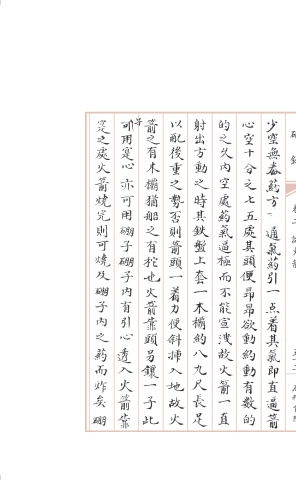 少空無舂药方一通氣药引一点着其氣即直逼箭
心空十分之七五處其頭便昻昻欲動約動有数的
的之久内空處药氣逼極而不能宣洩故火箭一直
射出方動之時其鉄盤上套一木櫤約八九尺長足
以配後重之勢否則箭頭一着力便斜挿入地故火
箭之有木櫤猶船之有柁也火箭靠頭另鑲一子此
子可用寔心亦可用硼子硼子内有引心透入火箭靠
寔之處火箭燒完則可燒及硼子内之药而炸矣硼